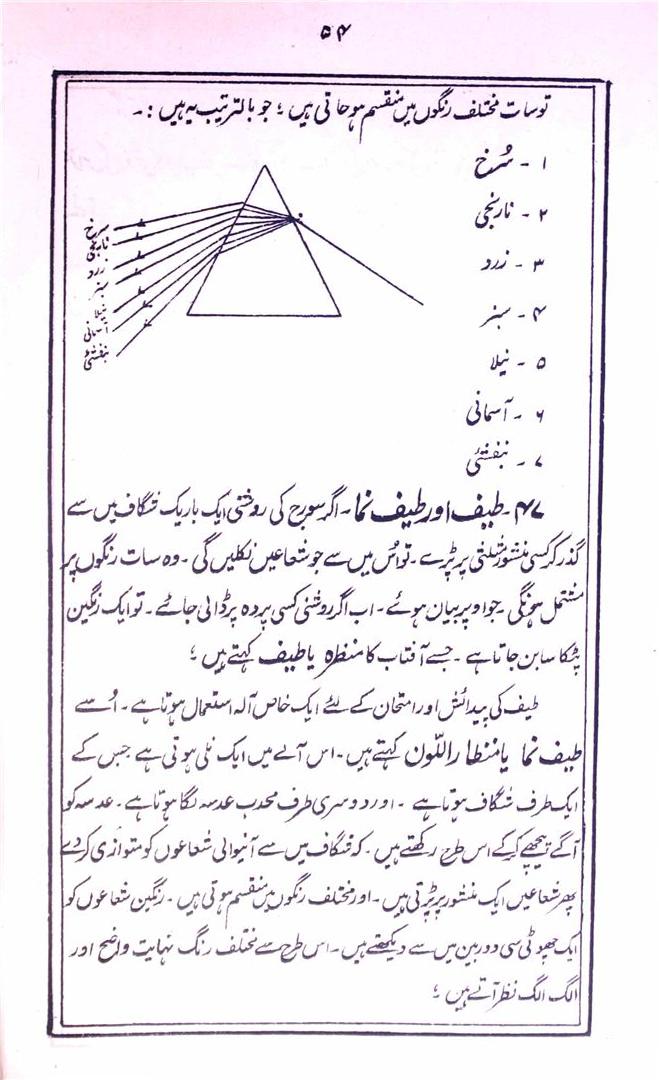 ۵۴
تو سات مختلف رنگوں میں منقسم ہو جاتی ہیں ؛ جو بالترتیب یہ ہیں :۔
۱ - سُرخ
۲ - نارنجی
۳ - زرد
۴ - سبز
۵ - نیلا
۶ - آسمانی
۷ - بنفشئی
سرخ
نارنجی
زرد
سبز
نیلا
آسمانی
بنفشئی
۴۷ - طیف اور طیف نما ۔ اگر سورج کی روشنی ایک باریک شگاف میں سے
گذر کر کسی منشور مثلثی پر پڑے ۔ تو اُس میں سے جو شعاعیں نکلیں گی ۔ وہ سات رنگوں پر
مشتمل ہونگی ۔ جو اوپر بیان ہوئے ۔ اب اگر روشنی کسی پردہ پر ڈالی جائے ۔ تو ایک رنگین
پٹکا سا بن جاتا ہے ۔ جسے آفتاب کا منظرہ یا طیف کہتے ہیں ؛
طیف کی پیدائش اور امتحان کے لئے ایک خاص آلہ استعمال ہوتا ہے ۔ اُسے
طیف نما یا منظار اللّون کہتے ہیں ۔ اس آلے میں ایک نلی ہوتی ہے جس کے
ایک طرف شگاف ہوتا ہے ۔ اور دوسری طرف محدب عدسہ لگا ہوتا ہے ۔ عدسہ کو
آگے پیچھے کر کے اس طرح رکھتے ہیں ۔ کہ شگاف میں سے آنیوالی شعاعوں کو متوازی کر دے
پھر شعاعیں ایک منشور پر پڑتی ہیں ۔ اور مختلف رنگوں میں منقسم ہوتی ہیں ۔ رنگین شعاعوں کو
ایک چھوٹی سی دوربین میں سے دیکھتے ہیں ۔ اس طرح سے مختلف رنگ نہایت واضح اور
الگ الگ نظر آتے ہیں ؛